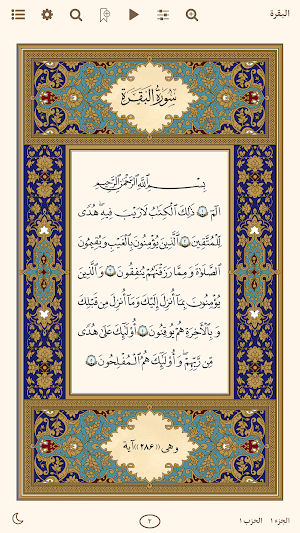 البقرة
سُورَةُ الْبَقَرَةِ
بِسْمِ اللَّهِ الرَّحْمَٰنِ الرَّحِيمِ
الٓمٓ ۝١ ذَٰلِكَ الْكِتَابُ لَا رَيْبَ ۛ فِيهِ ۛ هُدًى
لِّلْمُتَّقِينَ ۝٢ الَّذِينَ يُؤْمِنُونَ بِالْغَيْبِ وَيُقِيمُونَ
الصَّلَاةَ وَمِمَّا رَزَقْنَاهُمْ يُنفِقُونَ ۝٣ وَالَّذِينَ
يُؤْمِنُونَ بِمَا أُنزِلَ إِلَيْكَ وَمَا أُنزِلَ مِن قَبْلِكَ
وَبِالْآخِرَةِ هُمْ يُوقِنُونَ ۝٤ أُولَٰئِكَ عَلَىٰ هُدًى
مِّن رَّبِّهِمْ ۖ وَأُولَٰئِكَ هُمُ الْمُفْلِحُونَ ۝٥
وهى «٢٨٦» آية
الجزء ١ الحزب ١
٢